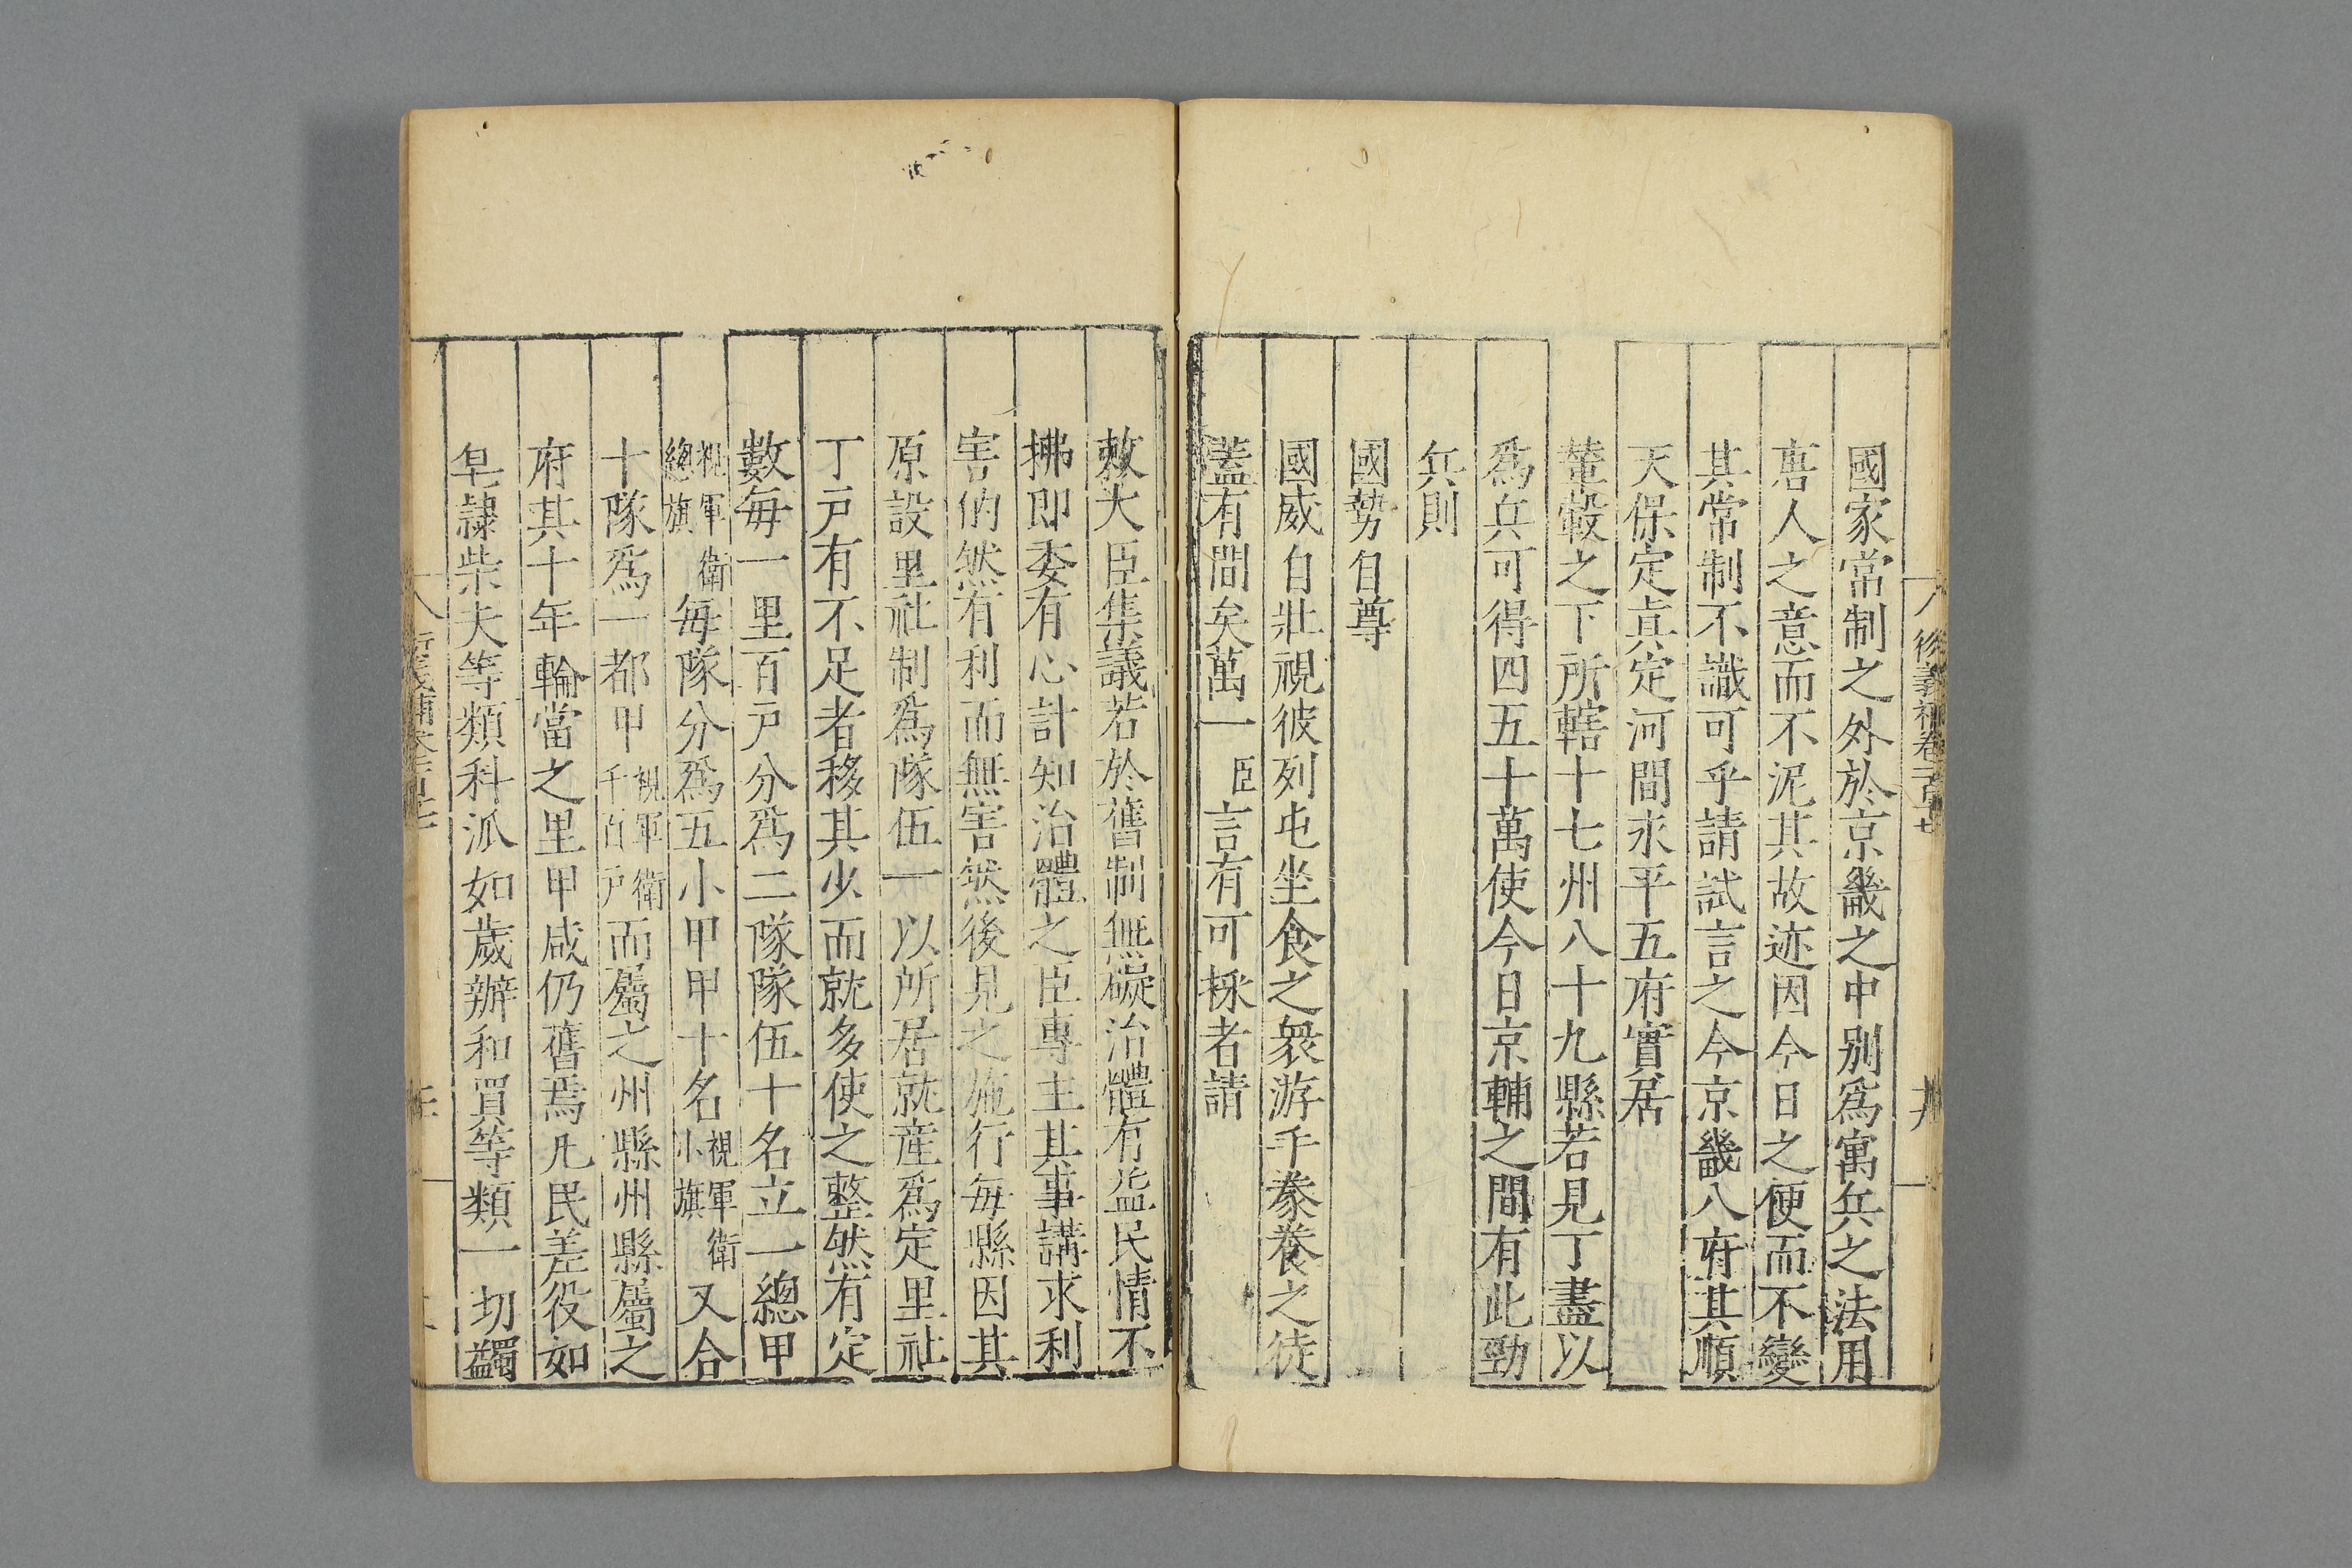 衍義補卷一百十七
九
國家常制之外於京畿之中别爲寓兵之法用
唐人之意而不泥其故迹因今日之便而不變
其常制不識可乎請試言之今京畿八府其順
天保定真定河間永平五府實居
輦轂之下所轄十七州八十九縣若見丁盡以
爲兵可得四五十萬使今日京輔之間有此勁
兵則
國勢自尊
國威自壯視彼列屯坐食之衆游手豢養之徒
蓋有間矣萬一臣言有可採者請
敕大臣集議若於舊制無礙治體有益民情不
拂即委有心計知治體之臣專主其事講求利
害的然有利而無害然後見之施行每縣因其
原設里社制爲隊伍一以所居就産爲定里社
丁戸有不足者移其少而就多使之整然有定
數每一里百戸分爲二隊隊伍十名立一總甲
視軍衛總旗每隊分爲五小甲甲十名視軍衛小旗又合
十隊爲一都甲視軍衛千百戸而屬之州縣州縣屬之
府其十年輪當之里甲咸仍舊焉凡民差役如
皁隷柴夫等類科派如歲辦和買等類一切蠲
衍義補卷一百十七